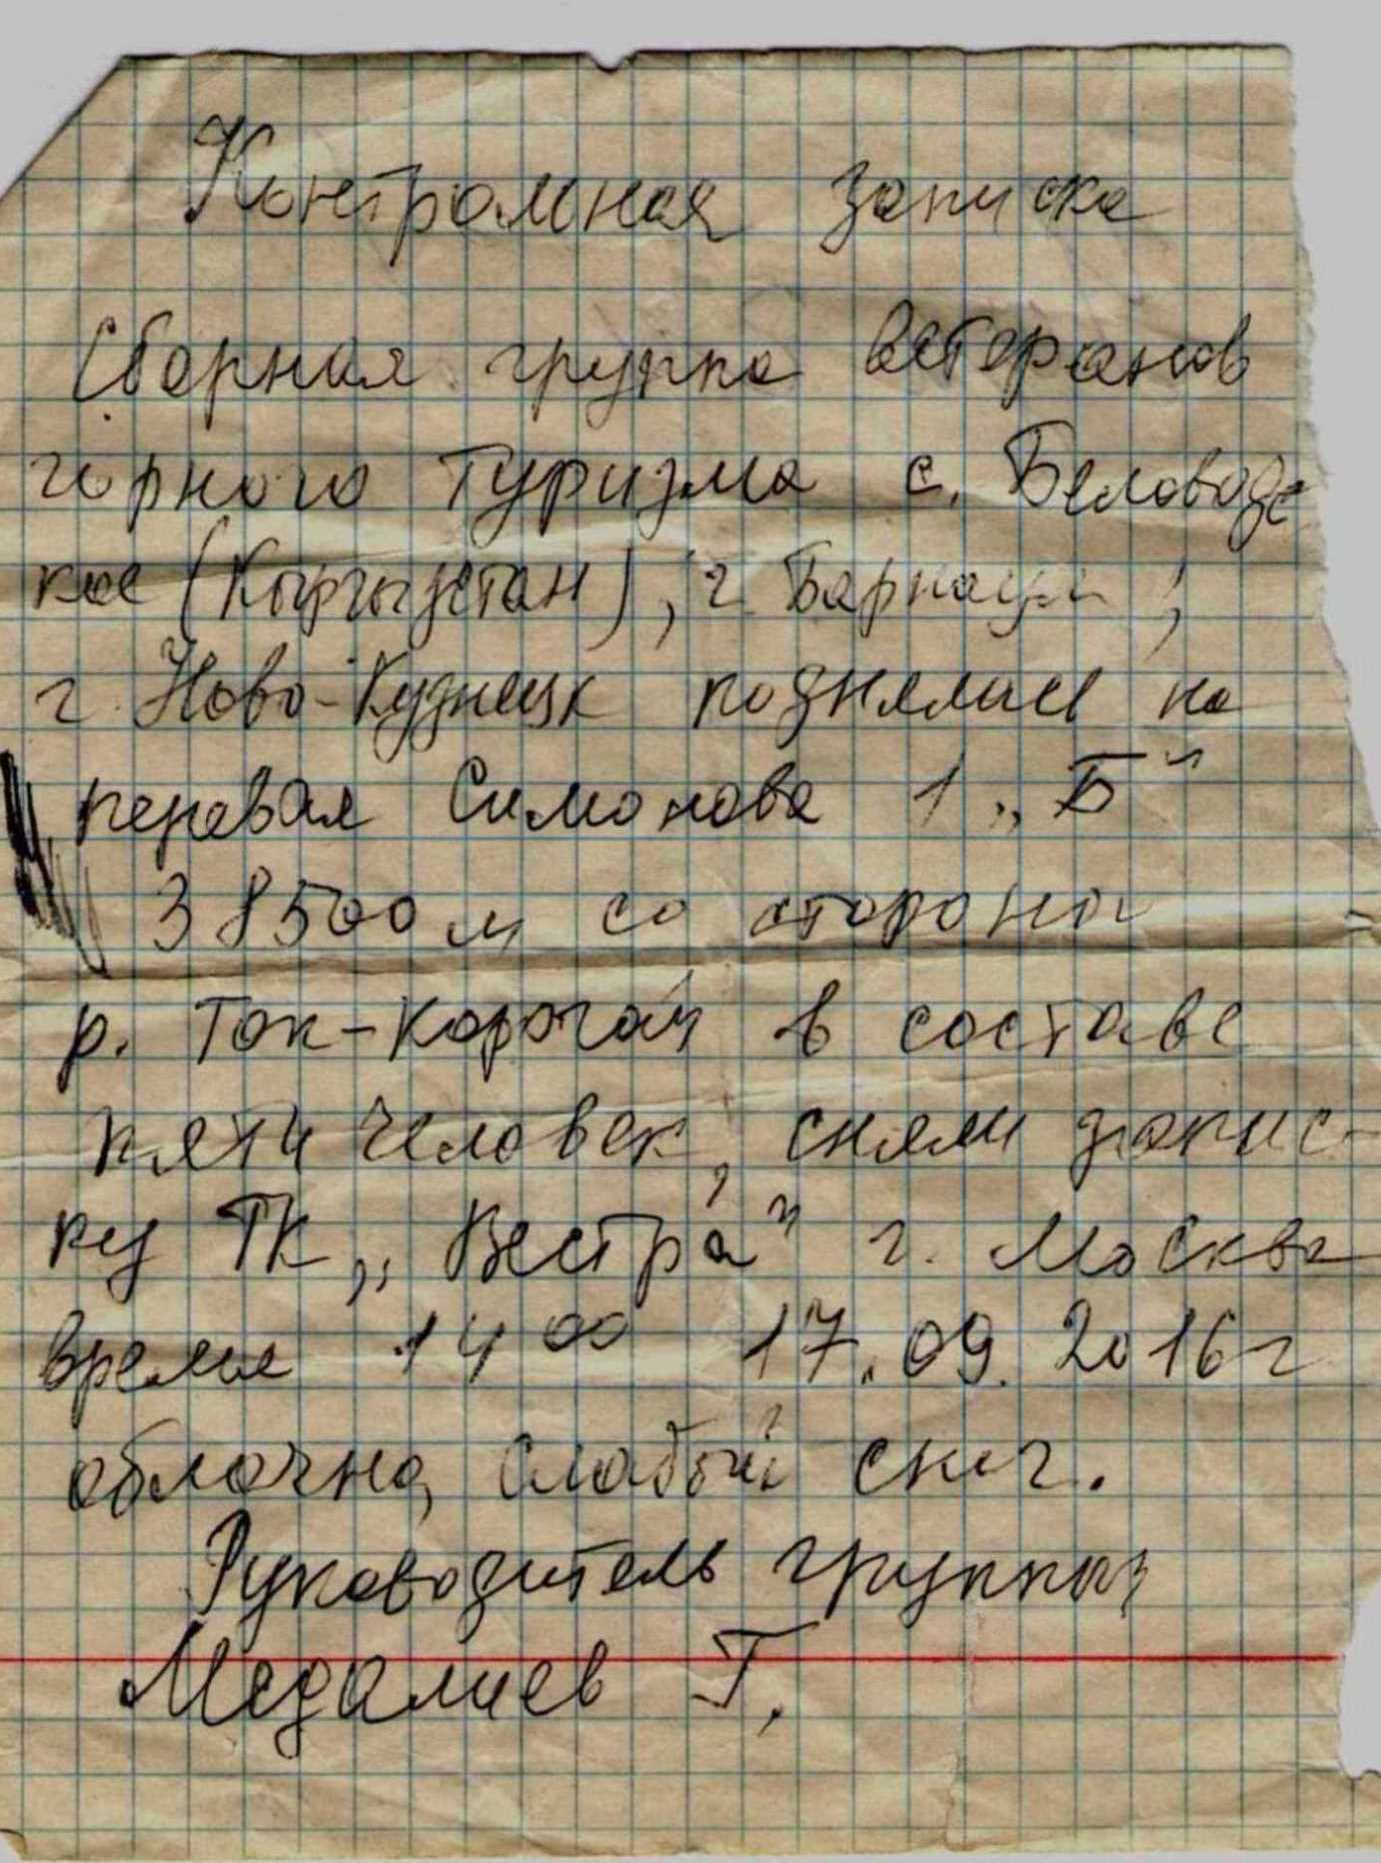 Контрольная записка
Сборная группа ветеранов
горного туризма с. Беловодс
кое (Кыргызстан), г Барнаул,
г. Ново-Кузнецк поднялись на
перевал Симонова 1 „Б"
38500м со стороны
р. Ток-Корогой в составе
пяти человек, сняли запис-
ку ТК „Вестра" г. Москва
время 14 00 17.09.2016г
облачно, слабый снег.
Руководитель группы
Медалиев Г.